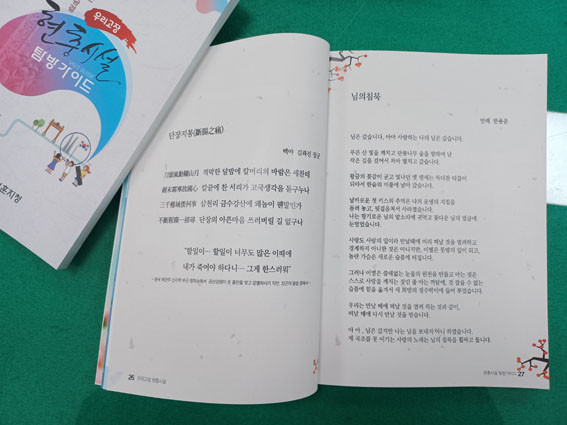 우리고장
현충시설
탐방가이드
훈지청
단장지통(斷腸之痛)
백야 김좌진 장군
적막한 달밤에 칼머리의 바람은 세찬데
칼끝에 찬 서리가 고국생각을 돋구누나
삼천리 금수강산에 왜놈이 웬말인가
단장의 아픈마음 쓰러버릴 길 없구나
"할일이… 할일이 너무도 많은 이때에
내가 죽어야 하다니… 그게 한스러워"
26 우리고장 현충시설
님의침묵
만해 한용운
님은 갔습니다. 아아 사랑하는 나의 님은 갔습니다.
푸른 산 빛을 깨치고 단풍나무 숲을 향하여 난
작은 길을 걸어서 차마 떨치고 갔습니다.
황금의 꽃같이 굳고 빛나던 옛 맹세는 차디찬 티끌이
되어서 한숨의 미풍에 날아 갔습니다.
날카로운 첫 키스의 추억은 나의 운명의 지침을
돌려 놓고, 뒷걸음쳐서 사라졌습니다.
나는 향기로운 님의 말소리에 귀먹고 꽃다운 님의 얼굴에
눈멀었습니다.
사랑도 사람의 일이라 만날때에 미리 떠날 것을 염려하고
경계하지 아니한 것은 아니지만, 이별은 뜻밖의 일이 되고,
놀란 가슴은 새로운 슬픔에 터집니다.
그러나 이별은 쓸데없는 눈물의 원천을 만들고 마는 것은
스스로 사랑을 깨치는 것인 줄 아는 까닭에, 것 잡을 수 없는
슬픔에 힘을 옮겨서 새 희망의 정수박이에 들어 부었습니다.
우리는 만날 때에 떠날 것을 염려 하는 것과 같이,
떠날 때에 다시 만날 것을 믿습니다.
아 아, 님은 갔지만 나는 님을 보내지 아니 하였습니다.
제 곡조를 못 이기는 사랑의 노래는 님의 침묵을 휩싸고 돕니다.
현충시설 탐방가이드 27